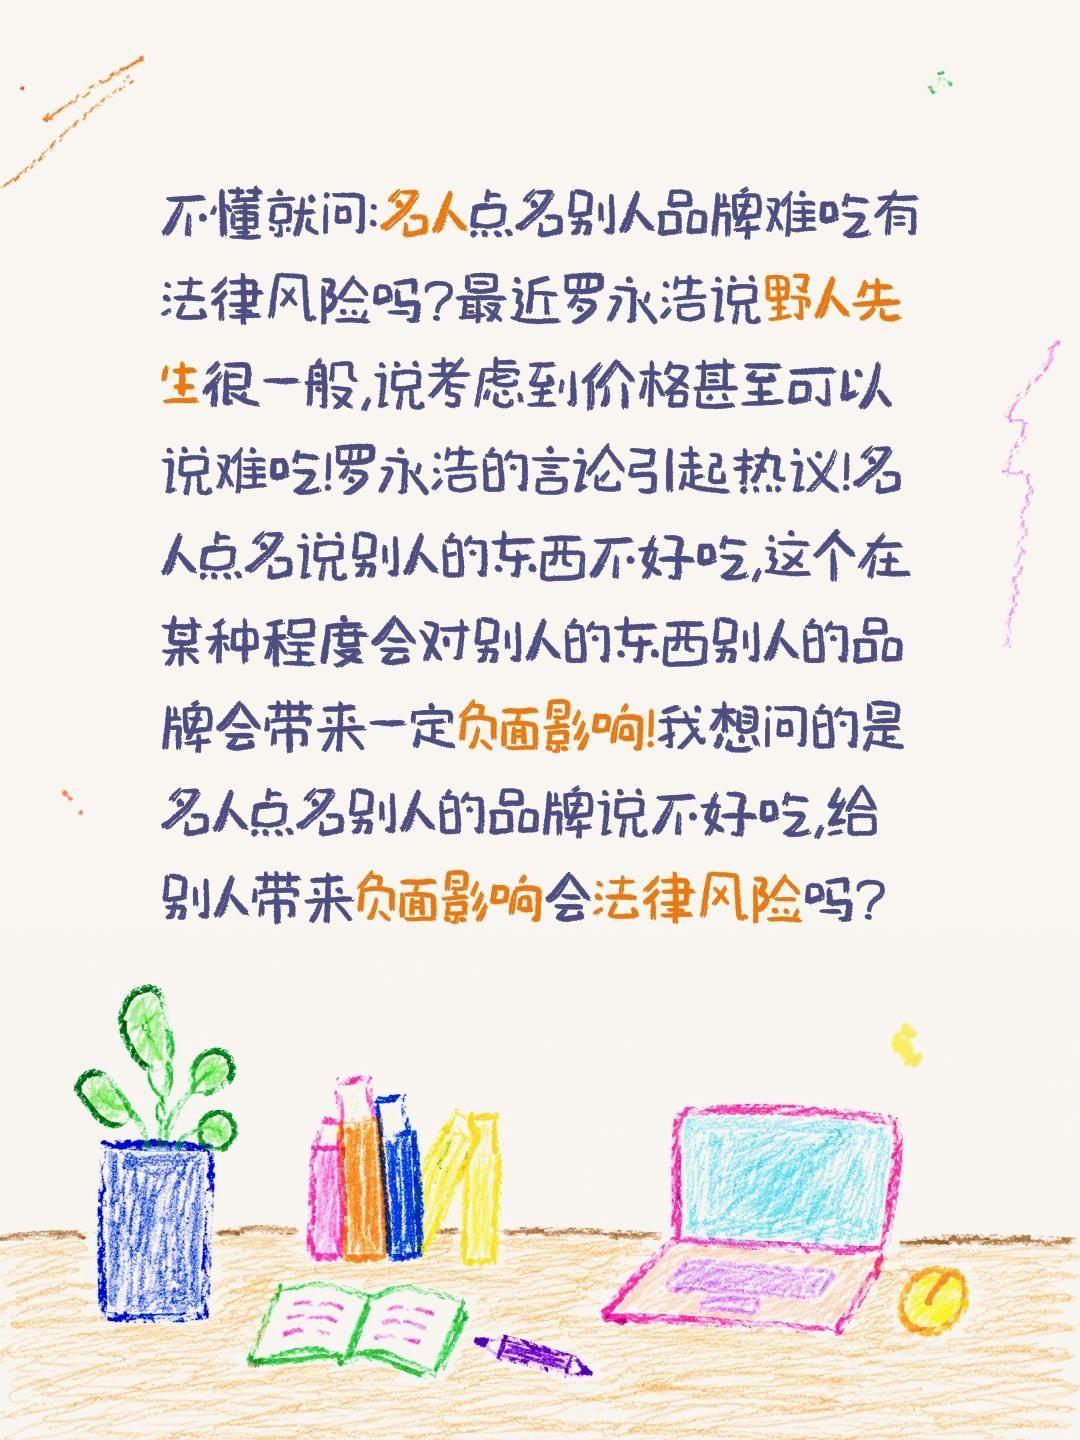 不懂就问:名人点名别人品牌难吃有
法律风险吗?最近罗永浩说野人先
生很一般,说考虑到价格甚至可以
说难吃!罗永浩的言论引起热议!名
人点名说别人的东西不好吃,这个在
某种程度会对别人的东西别人的品
牌会带来一定负面影响!我想问的是
名人点名别人的品牌说不好吃,给
别人带来负面影响会法律风险吗?